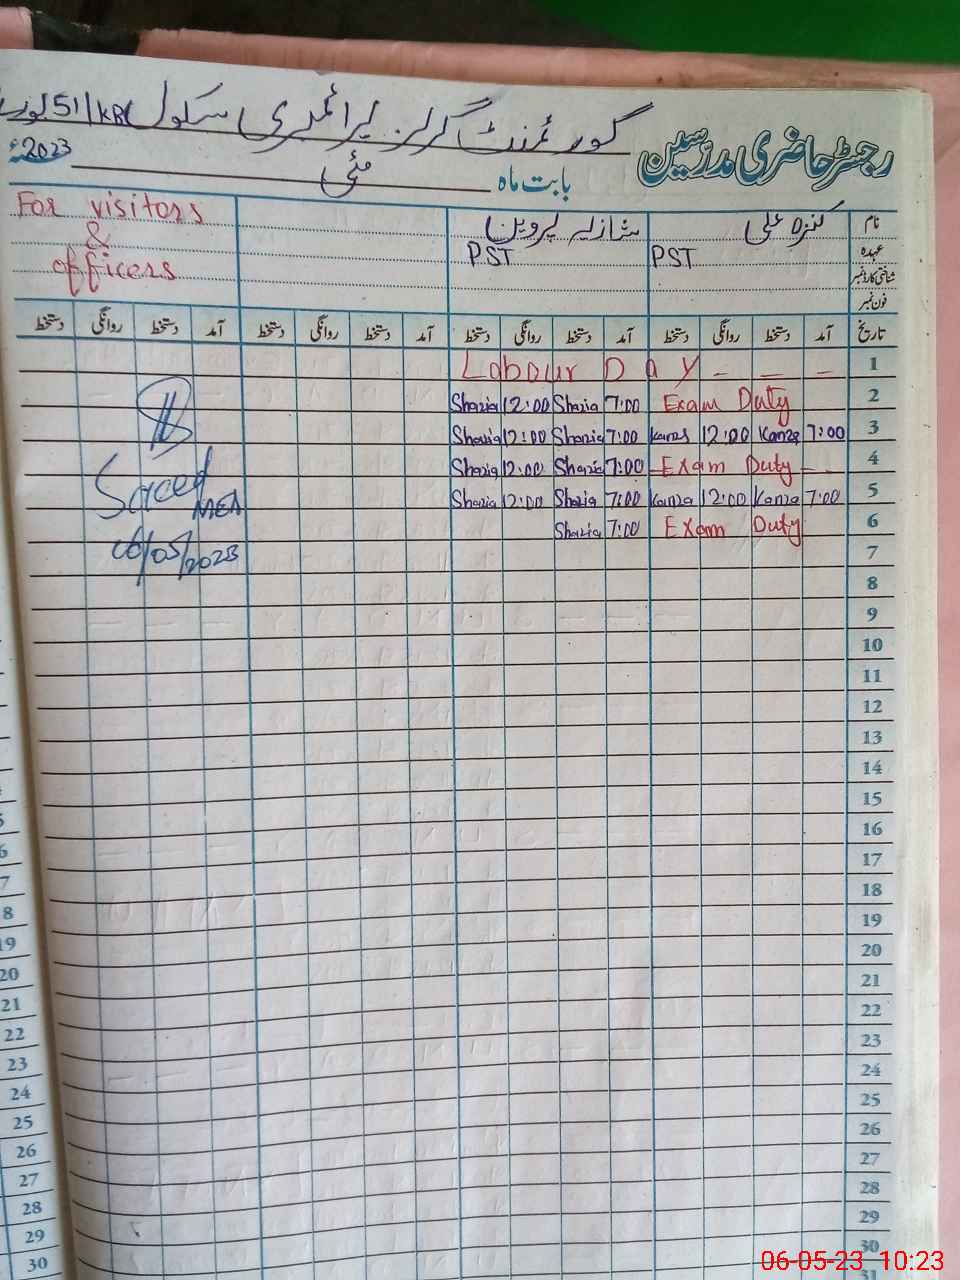 گورنمنٹ گرلز پرائمری سکول 51/KB
رجسٹر حاضری مدرسین
بابت ماہ مئی 2023ء
نام کنزہ علی شازیہ پروین For visitors
عہدہ PST PST &
شناختی کارڈ نمبر officers
فون نمبر
تاریخ آمد دستخط روانگی دستخط آمد دستخط روانگی دستخط آمد دستخط روانگی دستخط آمد دستخط روانگی دستخط
1 Labour Day - - -
2 Exam Duty 7:00 Shazia 12:00 Shazia
3 7:00 Kanza 12:00 Kanza 7:00 Shazia 12:00 Shazia
4 Exam Duty - - 7:00 Shazia 12:00 Shazia
5 7:00 Kanza 12:00 Kanza 7:00 Shazia 12:00 Shazia
6 Exam Duty 7:00 Shazia
Saeed
MEA
06/05/2023
7
8
9
10
11
12
13
14
15
16
17
18
19
20
21
22
23
24
25
26
27
28
29
30
31
6
7
8
19
20
21
22
23
24
25
26
27
28
29
30
06-05-23 10:23